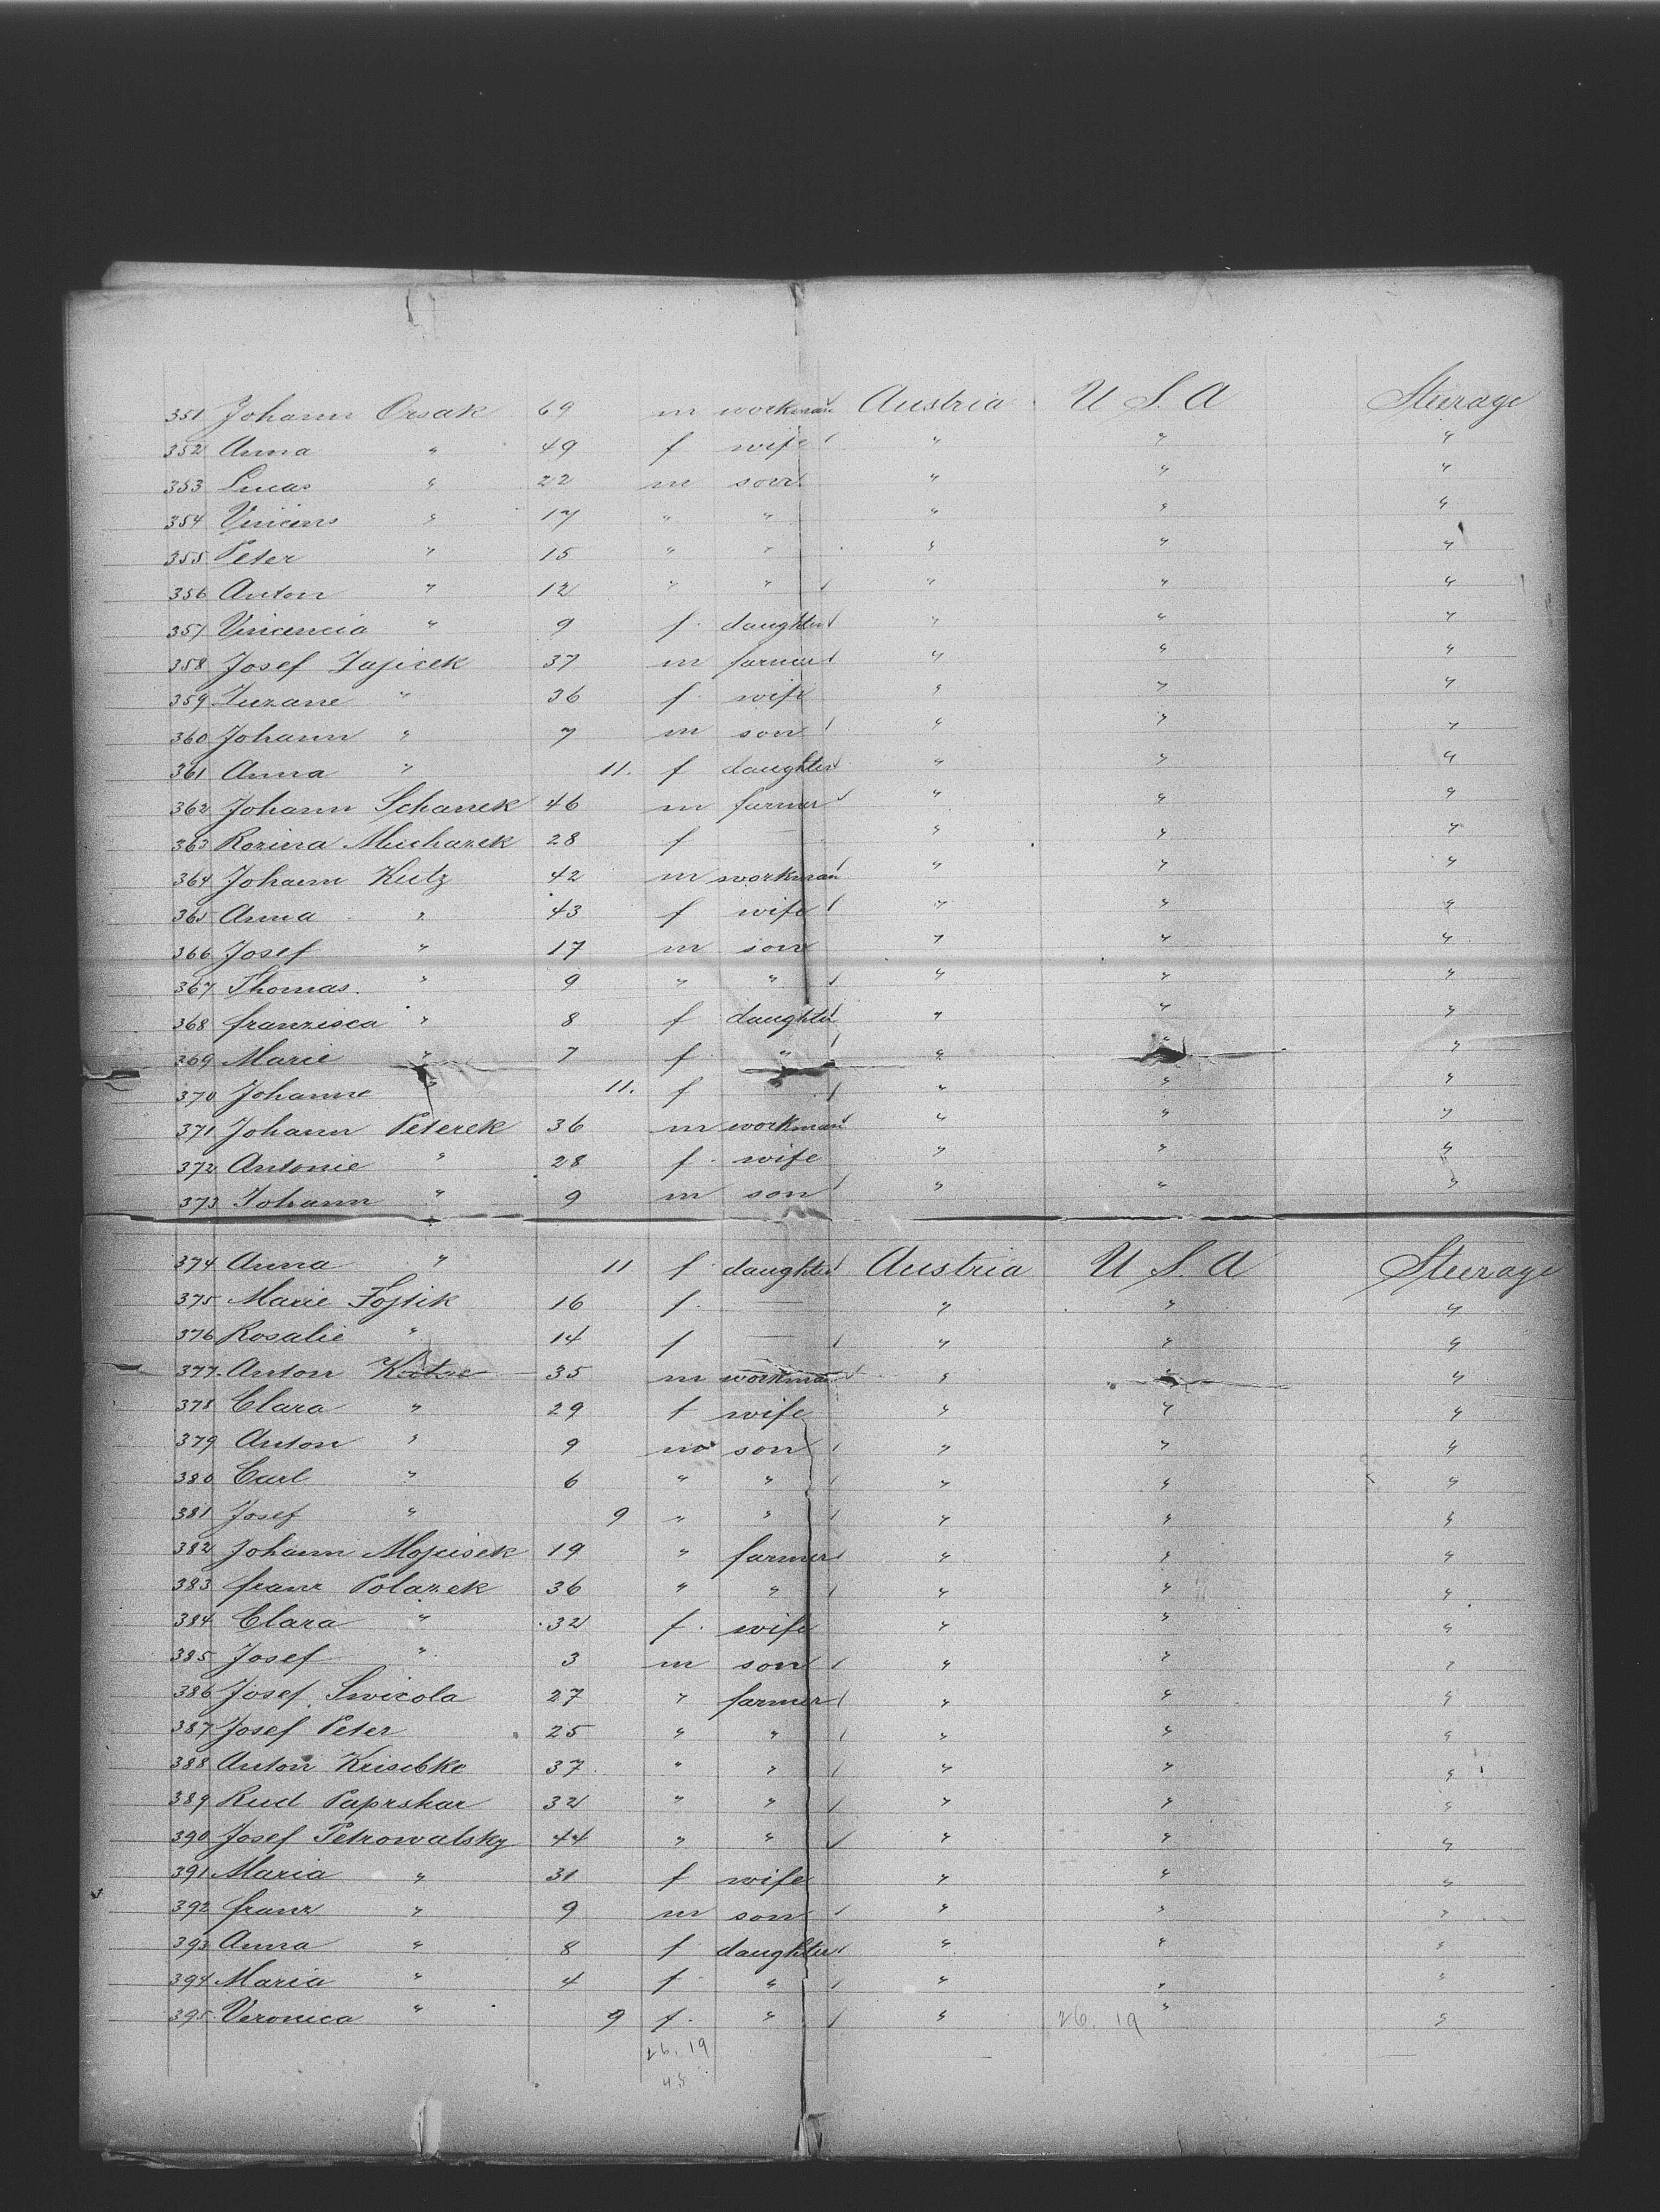 351 Johann Orsak 69 m workman Austria U S. A Steerage
352 Anna " 49 f wife " " "
353 Lucas " 22 m son " " "
354 Vincens " 17 " " " " "
355 Peter " 15 " " " " "
356 Anton " 12 " " " " "
357 Vincencia " 9 f daughter " " "
358 Josef Zajicek 37 m farmer " " "
359 Zuzane " 36 f wife " " "
360 Johann " 7 m son " " "
361 Anna " 11. f daughter " " "
362 Johann Schanek 46 m farmer " " "
363 Rozina Mucharek 28 f — " " "
364 Johann Kutz 42 m workman " " "
365 Anna " 43 f wife " " "
366 Josef " 17 m son " " "
367 Thomas. " 9 " " " " "
368 franzisca " 8 f daughter " " "
369 Marie " 7 f " " " "
370 Johanne " 11. f " " "
371 Johann Peterek 36 m workman " " "
372 Antonie " 28 f wife " " "
373 Johann " 9 m son " " "
374 Anna " 11 f daughter Austria U S. A Steerage
375 Marie Fojtik 16 f — " " "
376 Rosalie " 14 f — " " "
377. Anton 35 m workman " " "
378 Clara " 29 f wife " " "
379 Anton " 9 m son " " "
380 Carl " 6 " " " " "
381 Josef " 9 " " " " "
382 Johann 19 " farmer " " "
383 franz Polazek 36 " " " " "
384 Clara " 32 f. wife " " "
385 Josef " 3 m son " " "
386 Josef Swizola 27 " farmer " " "
387 Josef Peter 25 " " " " "
388 Anton 37 " " " " "
389 Rud Paprskar 32 " " " " "
390 Josef Petrowalsky 44 " " " " "
391 Maria " 31 f wife " " "
392 franz " 9 m son " " "
393 Anna " 8 f daughter " " "
394 Maria " 4 f " " " "
395. Veronica " 9 f. " " 26. 19 " "
26. 19
45